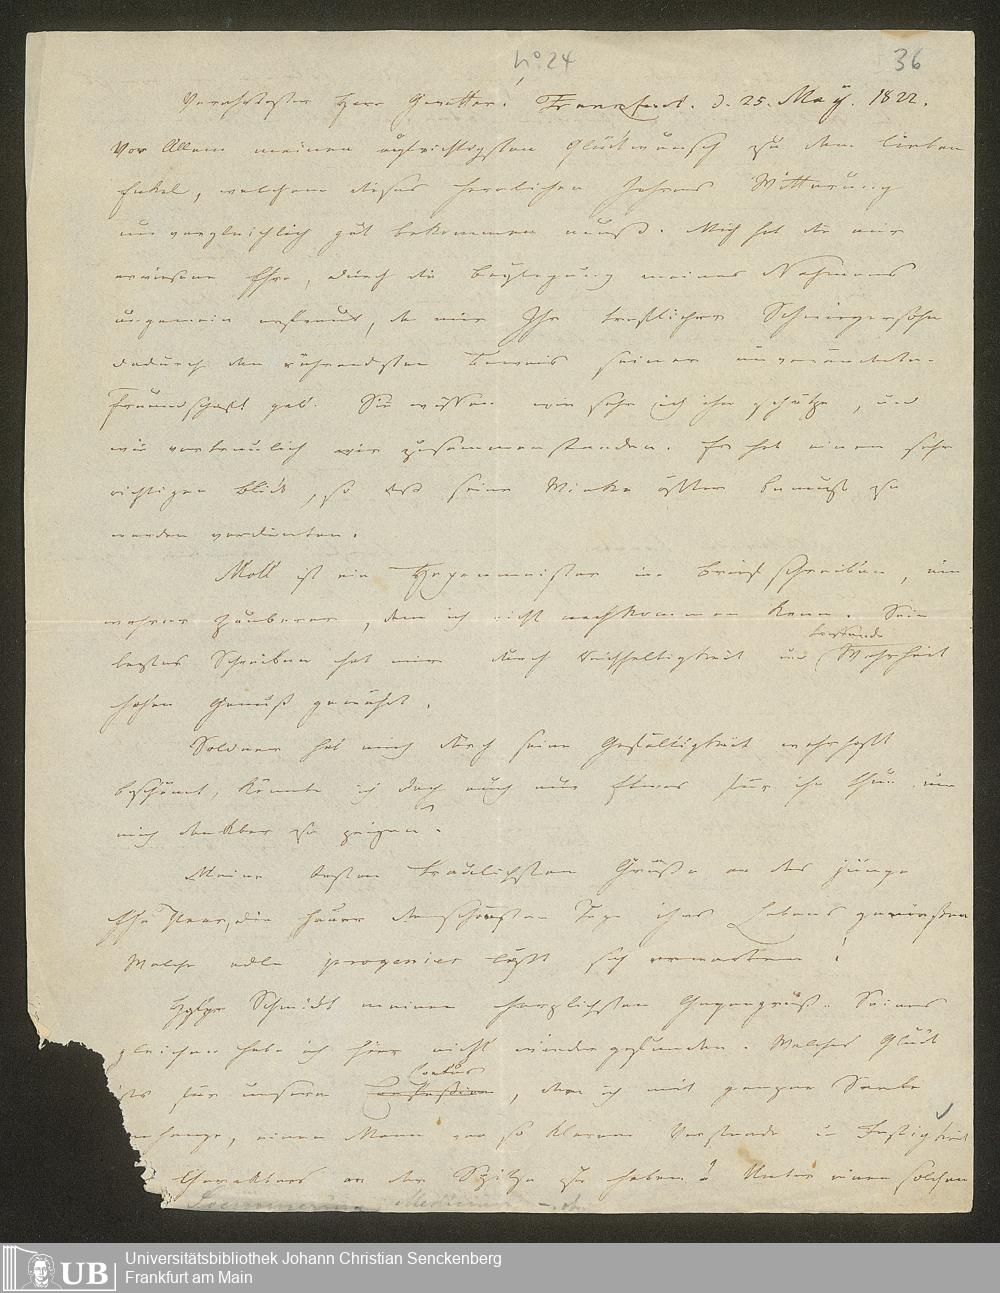 No. 24
36
Verehrtester Herr Gevatter! Frankfurt. d. 25. May. 1822.
Vor Allem meinen aufrichtigsten Glückwunsch zu dem lieben
Enkel, welchem dieses herrlichen Jahres Witterung
unvergleichlich gut bekommen muß. Mich hat die mir
erwiesene Ehre, durch die Beylegung meines Nahmens
ungemein erfreut, da mir Ihr trefflicher Schwiegersohn
dadurch den rührendsten Beweis seiner unveränderten
Freundschaft gab. Sie wissen wie sehr ich ihn schätze, und
wie vertraulich wir zusammenstanden. Er hat einen sehr
richtigen Blick, so daß seine Winke öfter benutzt zu
werden verdienten.
Moll ist ein Hexenmeister im Briefschreiben, ein
wahrer Zauberer, dem ich nicht nachkommen kann. Sein
letztes Schreiben hat mir durch Reichhaltigkeit und Wahrheit
hohen Genuß gewährt.
Soldner hat mich durch seine Gefälligkeit wahrhaft
beschämt, könnte ich doch auch nur Etwas für ihn thun, um
mich dankbar zu zeigen.
Meine besten traulichsten Grüße an das junge
Ehe Paar, die heuer die schönsten Tage ihres Lebens genießen
Welche edle progenies läßt sich erwarten!
Schmidt meinen herzlichsten Gegengruß. Seines
gleichen habe ich hier nicht wiedergefunden. Welches Glück
für unsern Coetus, dem ich mit ganzer Seele
anhange, einen Mann von so klarem Verstande u Festigkeit
Charakters an der Spitze zu haben! Unter einem solchen
Soemmerring
UB
Universitätsbibliothek Johann Christian Senckenberg
Frankfurt am Main